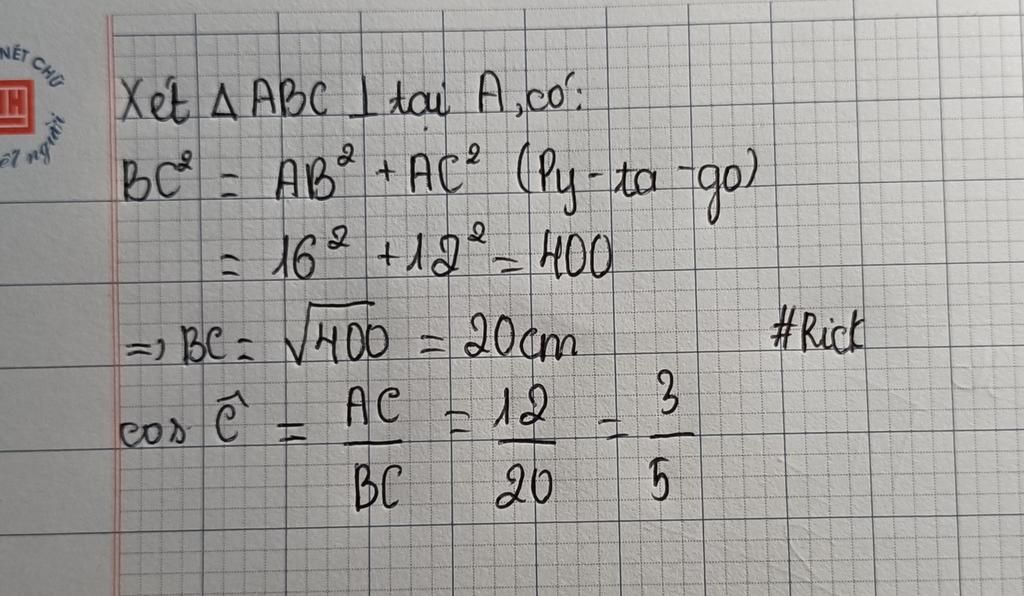 NÉT CHỮ
H
nết người
Xét Δ ABC ⊥ tại A, có:
BC² = AB² + AC² (Py-ta-go)
= 16² + 12² = 400
=> BC = √400 = 20cm
#Rick
cos Ĉ = AC/BC = 12/20 = 3/5